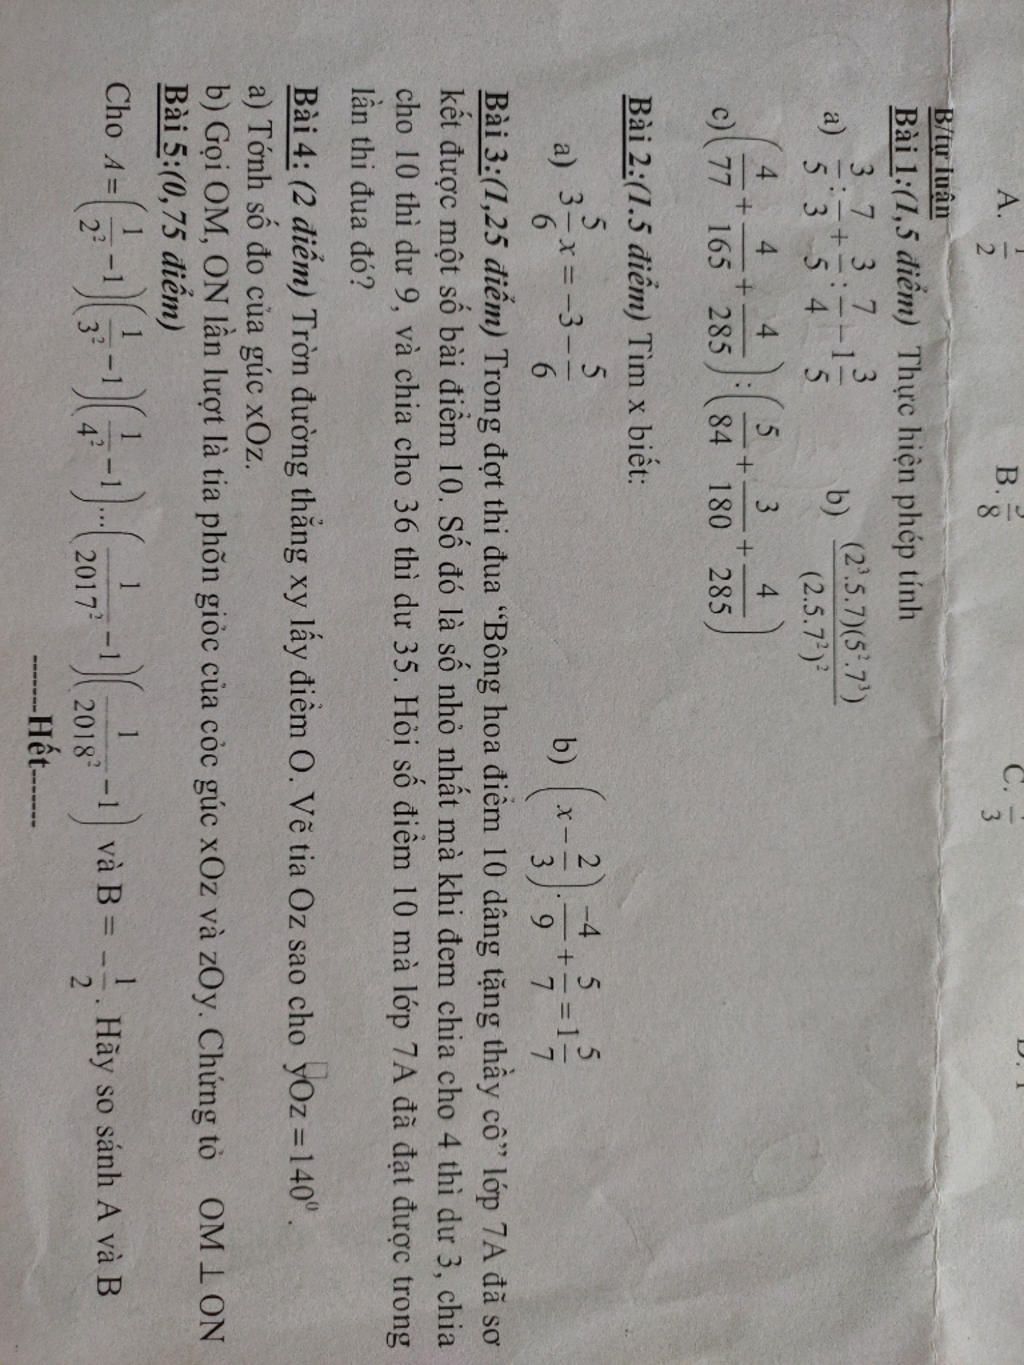 A. 1/2 B. 5/8 C. 1/3 D. 1
B/tự luận
Bài 1:(1,5 điểm) Thực hiện phép tính
a) 3/5 : 7/3 + 3/5 : 7/4 − 1 3/5 b) (2³.5.7)(5².7³) / (2.5.7²)²
c) (4/77 + 4/165 + 4/285) : (5/84 + 3/180 + 4/285)
Bài 2:(1.5 điểm) Tìm x biết:
a) 3 5/6 x = −3 − 5/6 b) (x − 2/3) . −4/9 + 5/7 = 1 5/7
Bài 3:(1,25 điểm) Trong đợt thi đua “Bông hoa điểm 10 dâng tặng thầy cô” lớp 7A đã sơ
kết được một số bài điểm 10. Số đó là số nhỏ nhất mà khi đem chia cho 4 thì dư 3, chia
cho 10 thì dư 9, và chia cho 36 thì dư 35. Hỏi số điểm 10 mà lớp 7A đã đạt được trong
lần thi đua đó?
Bài 4: (2 điểm) Trờn đường thẳng xy lấy điểm O. Vẽ tia Oz sao cho yOz = 140⁰ .
a) Tớnh số đo của gúc xOz.
b) Gọi OM, ON lần lượt là tia phõn giỏc của cỏc gúc xOz và zOy. Chứng tỏ OM ⊥ ON
Bài 5:(0,75 điểm)
Cho A = (1/2² − 1)(1/3² − 1)(1/4² − 1)...(1/2017² − 1)(1/2018² − 1) và B = −1/2. Hãy so sánh A và B
-------Hết-------